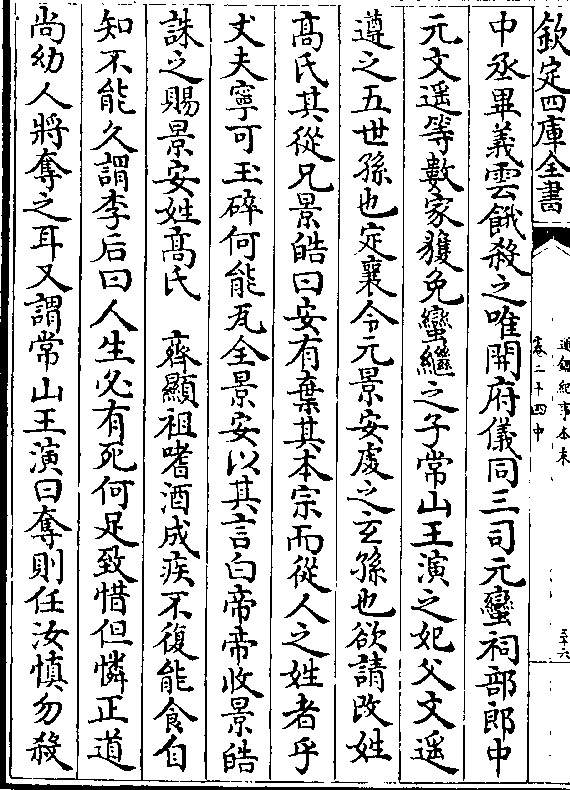 欽定四庫全書
通鑑紀事本末
卷二十四中
五十六
中丞畢義雲餓殺之唯開府儀同三司元蠻祠部郎中
元文遥等數家獲免蠻繼之子常山王演之妃父文遥
遵之五世孫也定襄令元景安䖍之玄孫也欲請改姓
髙氏其從兄景皓曰安有棄其本宗而從人之姓者乎
丈夫寧可玉碎何能瓦全景安以其言白帝帝收景皓
誅之賜景安姓髙氏　齊顯祖嗜酒成疾不復能食自
知不能久謂李后曰人生必有死何足致惜但憐正道
尚幼人將奪之耳又謂常山王演曰奪則任汝慎勿殺